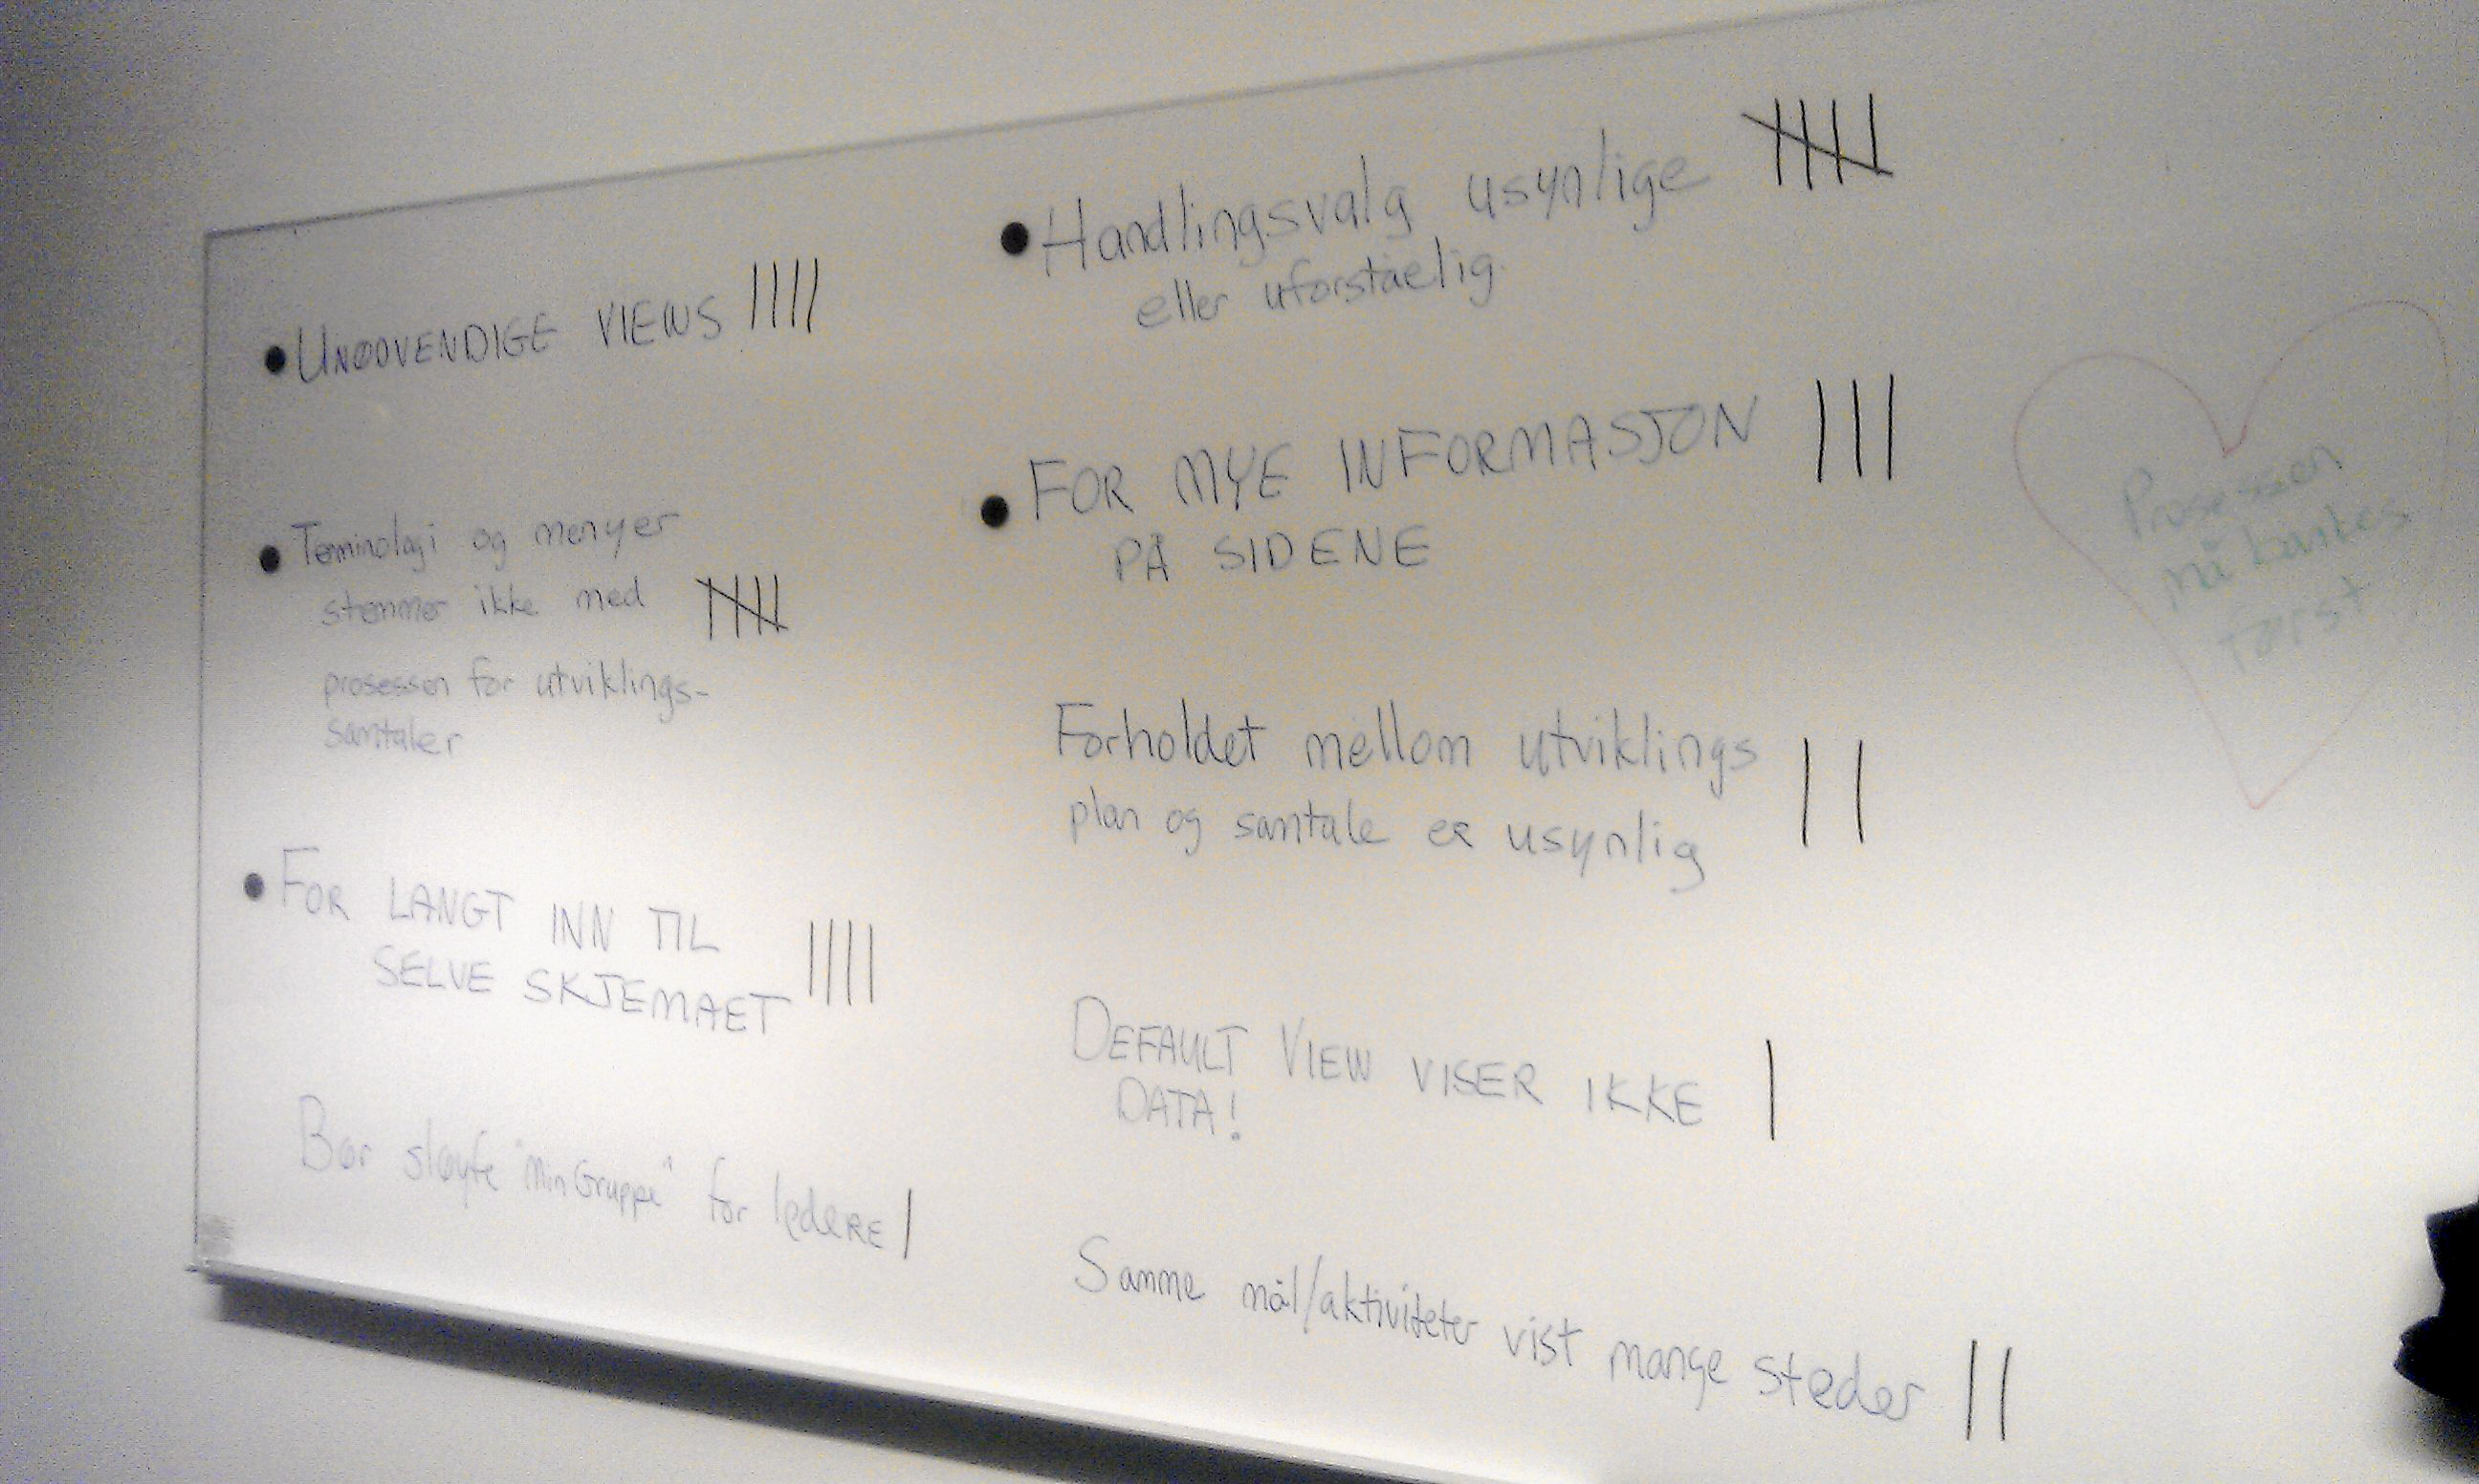 • UNØDVENDIGE VIEWS ||||
• Terminologi og menyer
stemmer ikke med
prosessen for utviklings-
samtaler
• FOR LANGT INN TIL
SELVE SKJEMAET ||||
Bør sløyfe "Min Gruppe" for ledeRE |
• Handlingsvalg usynlige
eller uforståelig.
• FOR MYE INFORMASJON |||
PÅ SIDENE
Forholdet mellom utviklings
plan og samtale er usynlig ||
DEFAULT VIEW VISER IKKE |
DATA!
Samme mål/aktiviteter vist mange steder ||
Prosessen
må
først